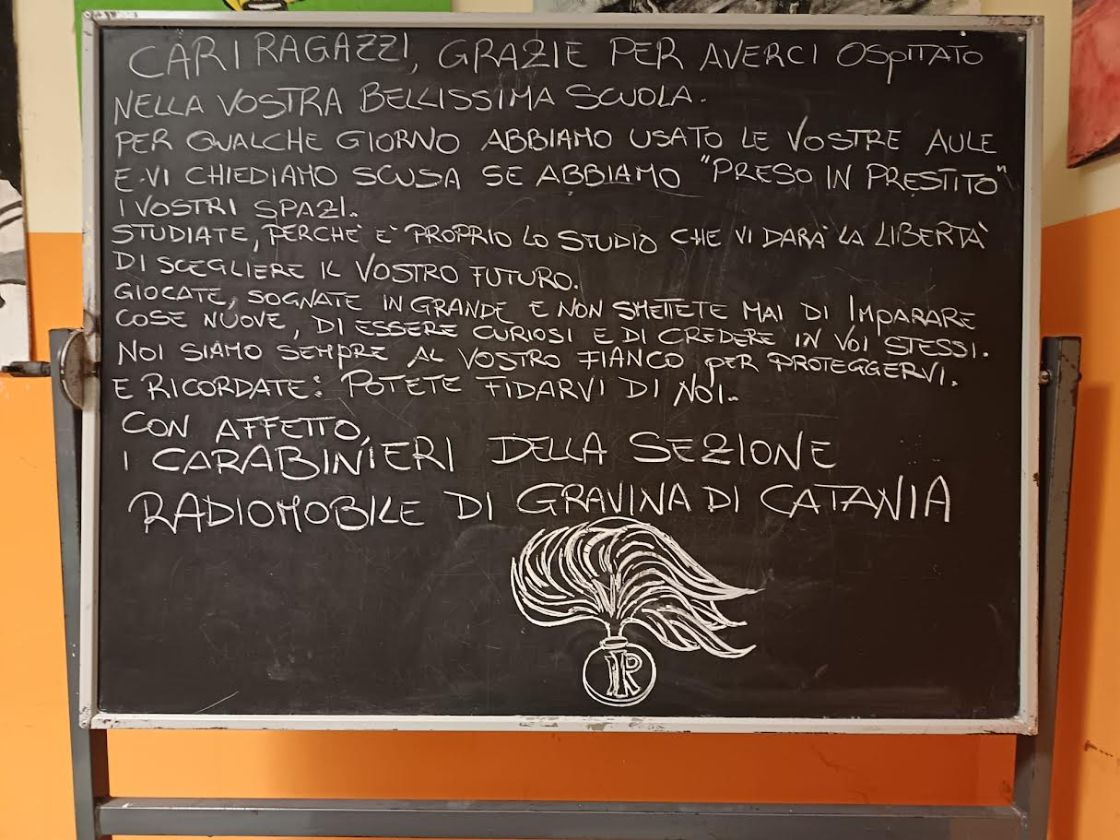 CARI RAGAZZI, GRAZIE PER AVERCI OSPITATO
NELLA VOSTRA BELLISSIMA SCUOLA.
PER QUALCHE GIORNO ABBIAMO USATO LE VOSTRE AULE
E VI CHIEDIAMO SCUSA SE ABBIAMO "PRESO IN PRESTITO"
I VOSTRI SPAZI.
STUDIATE, PERCHÈ È PROPRIO LO STUDIO CHE VI DARÀ LA LIBERTÀ
DI SCEGLIERE IL VOSTRO FUTURO.
GIOCATE, SOGNATE IN GRANDE E NON SMETTETE MAI DI IMPARARE
COSE NUOVE, DI ESSERE CURIOSI E DI CREDERE IN VOI STESSI.
NOI SIAMO SEMPRE AL VOSTRO FIANCO PER PROTEGGERVI.
E RICORDATE: POTETE FIDARVI DI NOI.
CON AFFETTO,
I CARABINIERI DELLA SEZIONE
RADIOMOBILE DI GRAVINA DI CATANIA
IR